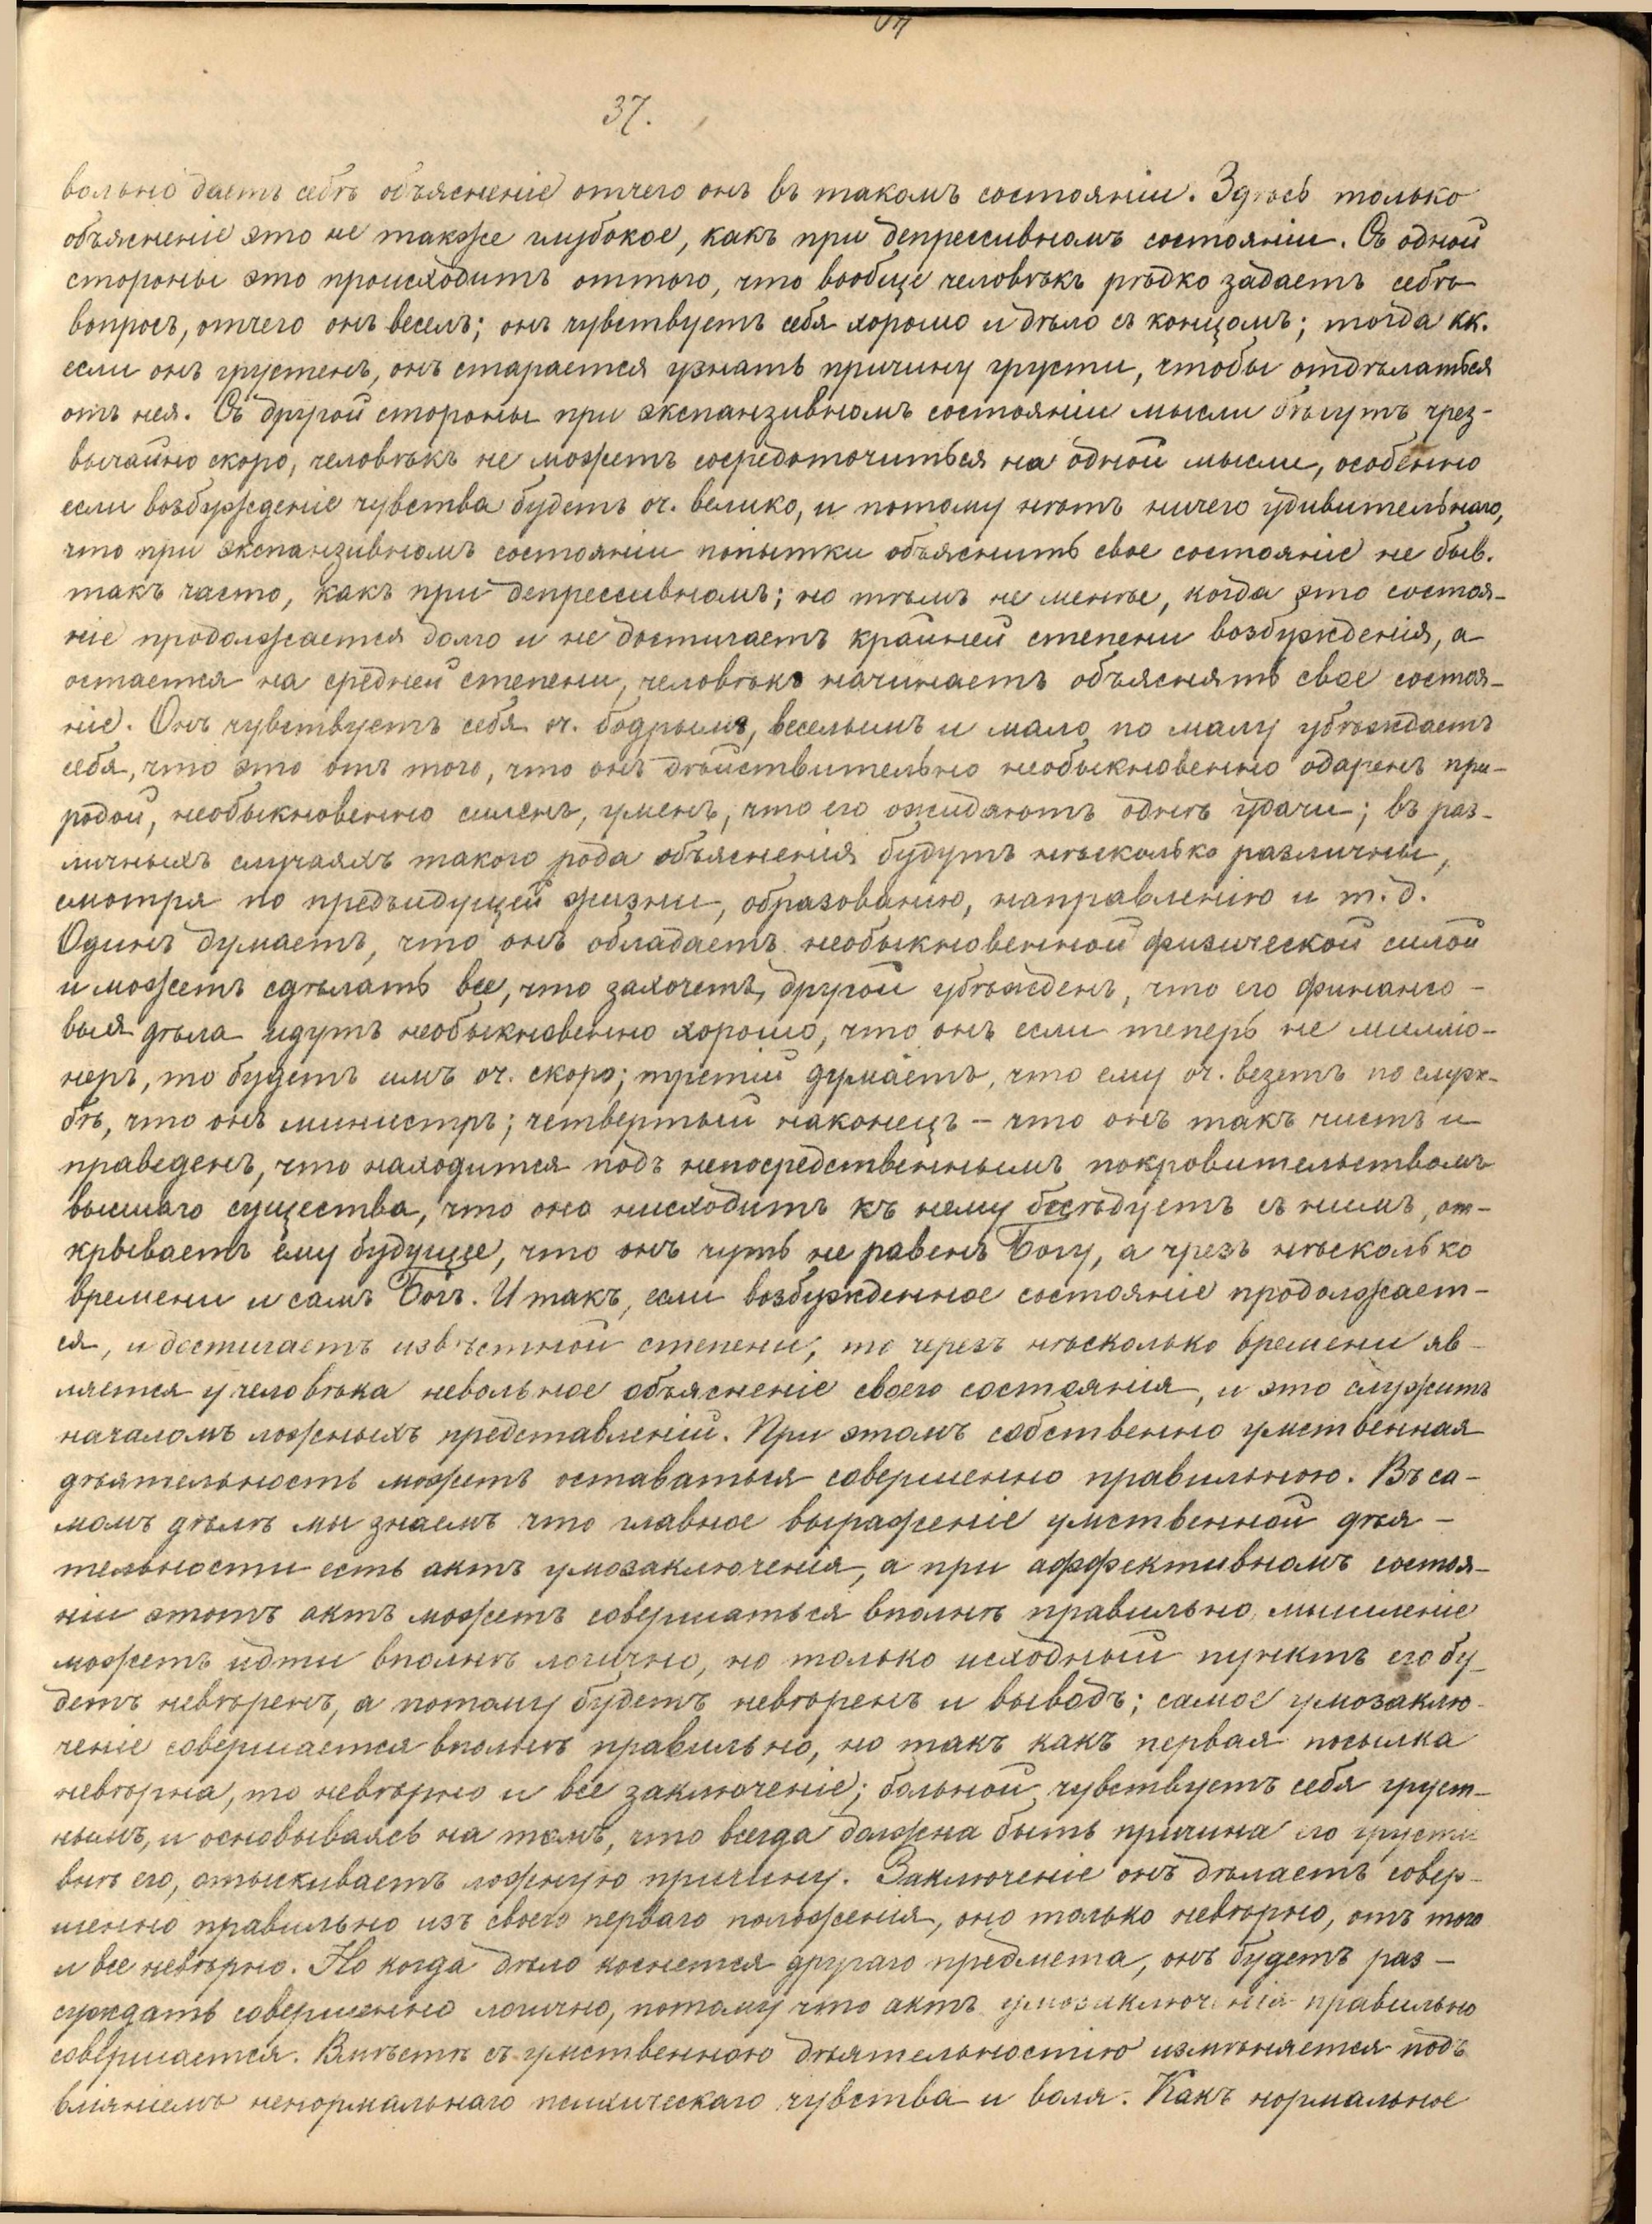 37.
вольно даетъ себѣ объясненіе отчего онъ въ такомъ состояніи. Здѣсь только
объясненіе это не такъже глубокое, какъ при депрессивномъ состояніи. Съ одной
стороны это происходитъ оттого, что вообще человѣкъ рѣдко задаетъ себѣ
вопросъ, отчего онъ веселъ; онъ чувствуетъ себя хорошо и дѣло съ концомъ; тогда кк.
если онъ грустенъ, онъ старается узнать причину грусти, чтобы отдѣлаться
отъ нея. Съ другой стороны при экспанзивномъ состояніи мысли бѣгутъ чрез-
вычайно скоро, человѣкъ не можетъ сосредоточиться на одной мысли, особенно
если возбужденіе чувства будетъ оч. велико, и потому нѣтъ ничего удивительнаго,
что при экспанзивномъ состояніи попытки объяснить свое состояніе не быв.
такъ часто, какъ при депрессивномъ; но тѣмъ не менѣе, когда это состоя-
ніе продолжается долго и не достигаетъ крайней степени возбужденія, а
остается на средней степени, человѣкъ начинаетъ объяснять свое состоя-
ніе. Онъ чувствуетъ себя оч. бодрымъ, веселымъ и мало по малу убѣждаетъ
себя, что это отъ того, что онъ дѣйствительно необыкновенно одаренъ при-
родой, необыкновенно силенъ, уменъ, что его ожидаютъ однѣ удачи; въ раз-
личныхъ случаяхъ такого рода объясненія будутъ нѣсколько различны,
смотря по предъидущей жизни, образованію, направленію и т. д.
Одинъ думаетъ, что онъ обладаетъ необыкновенной физической силой
и можетъ сдѣлать все, что захочетъ, другой убѣжденъ, что его финансо-
выя дѣла идутъ необыкновенно хорошо, что онъ если теперь не милліо-
неръ, то будетъ имъ оч. скоро; третій думаетъ, что ему оч. везетъ по служ-
бѣ, что онъ министръ; четвертый наконецъ - что онъ такъ чистъ и
праведенъ, что находится подъ непосредственнымъ покровительствомъ
высшаго существа, что оно нисходитъ къ нему бесѣдуетъ съ нимъ, от-
крываетъ ему будущее, что онъ чуть не равенъ Богу, а чрезъ нѣсколько
времени и самъ Богъ. Итакъ, если возбужденное состояніе продолжает-
ся, и достигаетъ извѣстной степени, то черезъ нѣсколько времени яв-
ляется у человѣка невольное объясненіе своего состоянія, и это служитъ
началомъ ложныхъ представленій. При этомъ собственно умственная
дѣятельность можетъ оставаться совершенно правильною. Въ са-
момъ дѣлѣ мы знаемъ что главное выраженіе умственной дѣя-
тельности есть актъ умозаключенія, а при аффективномъ состоя-
ніи этотъ актъ можетъ совершаться вполнѣ правильно, мышленіе
можетъ идти вполнѣ логично, но только исходный пунктъ его бу-
детъ невѣренъ, а потому будетъ невѣренъ и выводъ; самое умозаклю-
ченіе совершается вполнѣ правильно, но такъ какъ первая посылка
невѣрна, то невѣрно и все заключеніе; больной чувствуетъ себя груст-
нымъ, и основываясь на томъ, что всегда должна быть причина его грусти
внѣ его, отыскиваетъ ложную причину. Заключеніе онъ дѣлаетъ совер-
шенно правильно изъ своего перваго положенія, оно только невѣрно, отъ того
и все невѣрно. Но когда дѣло коснется другаго предмета, онъ будетъ раз-
суждать совершенно логично, потому что актъ умозаключенія правильно
совершается. Вмѣстѣ съ умственною дѣятельностію измѣняется подъ
вліяніемъ ненормальнаго психическаго чувства и воля. Какъ нормальное